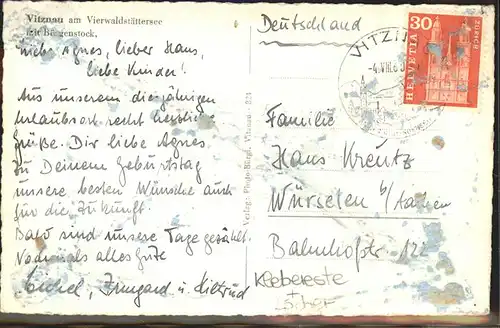 Vitznau am Vierwaldstättersee
mit Bürgenstock.
Liebe Agnes, lieber Hans,
liebe Kinder!
Aus unserem diesjährigen
Urlaubsort recht herzliche
Grüße. Dir liebe Agnes
zu Deinem Geburtstag
unsere besten Wünsche auch
für die Zukunft.
Bald sind unsere Tage gezählt.
Nochmals alles Gute
Irmgard u. Wiltrud
Verlag: Photo Bürgi, Vitznau
Deutschland
VITZN
-4.VIII.6
30
HELVETIA
ZÜRICH
Familie
Hans Kreutz
Würselen b/Aachen
Bahnhofstr 122
Klebereste